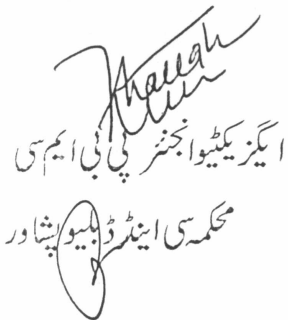 ایگزیکٹیو انجنئر پی بی ایم سی
محکمہ سی اینڈ ڈبلیو پشاور